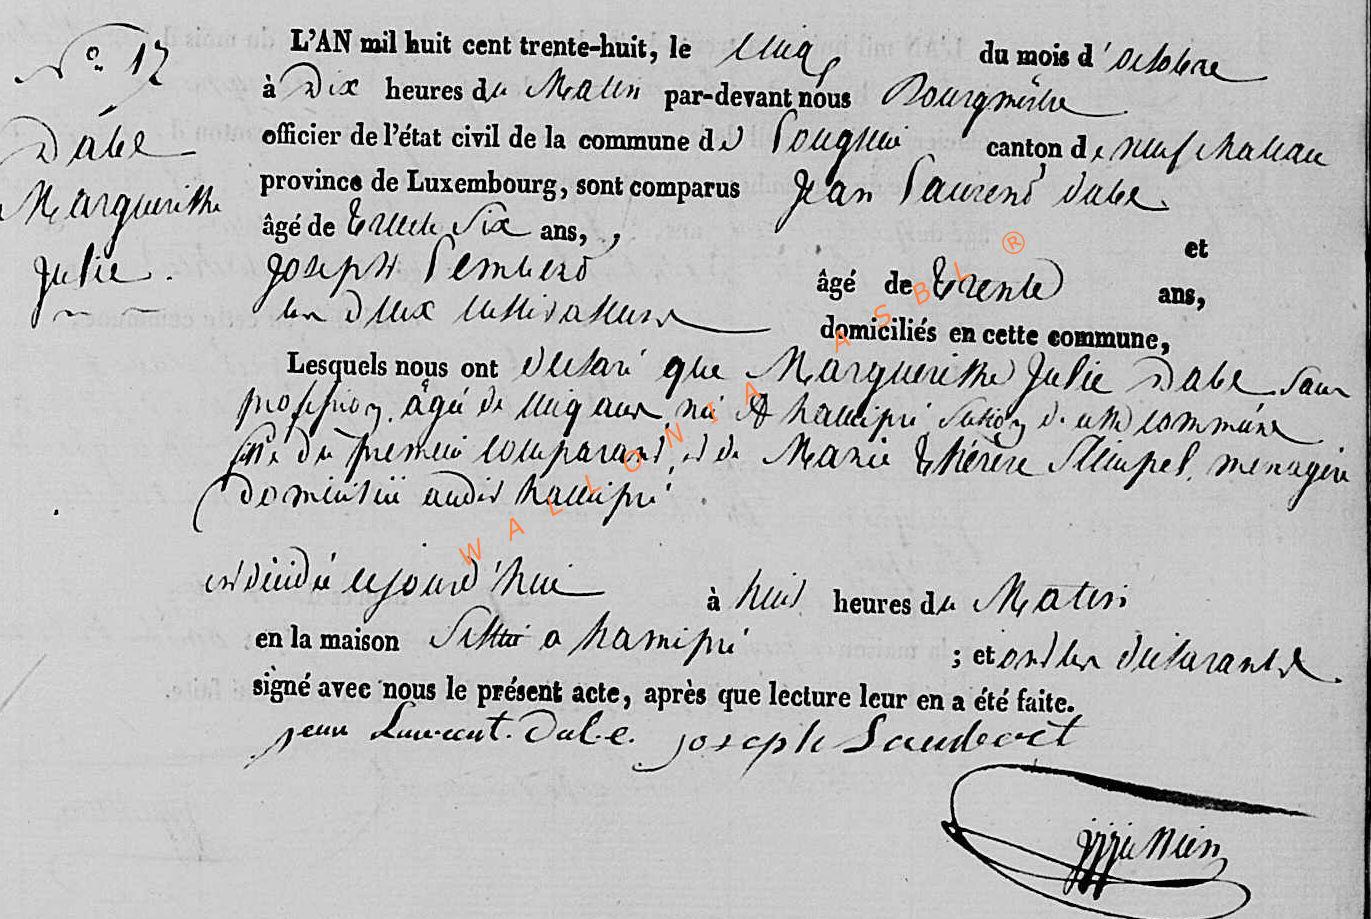 N° 17
Dabe
Marguerithe
Julie.
L'AN mil huit cent trente-huit, le cinq du mois d'octobre
à Dix heures du Matin par-devant nous Bourgmestre
officier de l'état civil de la commune de Longlier canton de neufchateau
province de Luxembourg, sont comparus Jean Laurent Dabe.
âgé de trente six ans, et
Joseph Lembert âgé de trente ans,
les deux cultivateurs domiciliés en cette commune,
Lesquels nous ont déclaré que Marguerithe Julie Dabe sans
profession, âgée de cinq ans, né A hamipré section de cette commune
fille du premier comparant, et de Marie thérèse menagère
domicilié audit hamipré.
est décédée cejourd'hui à huit heures du Matin
en la maison sittué a hamipré ; et ont les déclarants
signé avec nous le présent acte, après que lecture leur en a été faite.
jean Laurent. Dabe. joseph
WALLONIA ASBL ®